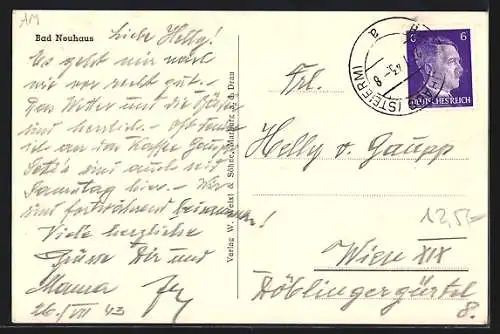 AM
Bad Neuhaus
Liebe Helly!
Es geht mir nach
wie vor recht gut. –
Das Wetter und die
sind herrlich. – Oft denke
ich an den Kaffee
sind auch seit
Samstag hier. – Wir
sind fortwährend beisammen!
Viele herzliche
Grüsse Dir und
Mama
26./VII 43
Verlag W. & Söhne, Marburg a. d. Drau
6
DEUTSCHES REICH
(STEIERM)
a
Frl.
Helly v. Gaupp
12,50
Wien XIX
Döblingergürtel
8.